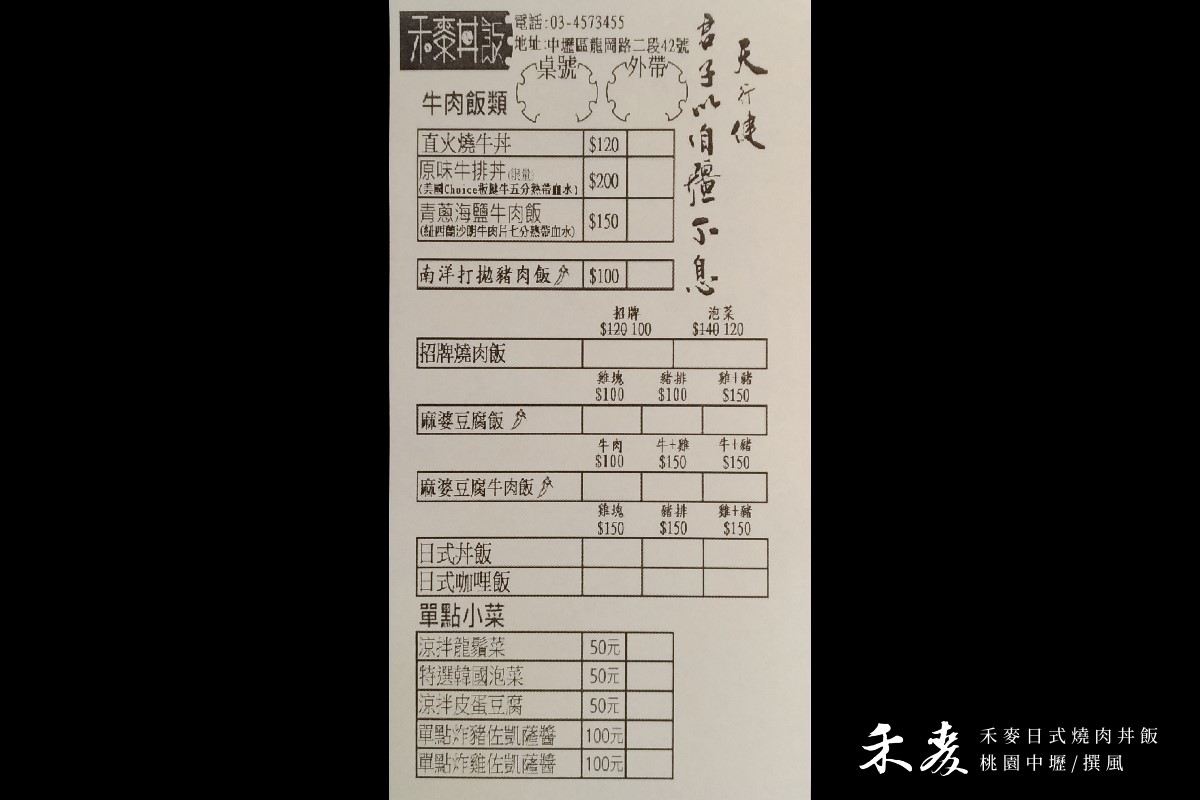 禾麥丼飯
電話:03-4573455
地址:中壢區龍岡路二段42號
桌號 外帶
天行健
君子以自彊不息
牛肉飯類
直火燒牛丼 $120
原味牛排丼(限量) $200
(美國Choice板腱牛五分熱帶血水)
青蔥海鹽牛肉飯 $150
(紐西蘭沙朗牛肉片七分熱帶血水)
南洋打拋豬肉飯 $100
招牌 泡菜
$120 100 $140 120
招牌燒肉飯
雞塊 豬排 雞+豬
$100 $100 $150
麻婆豆腐飯
牛肉 牛+雞 牛+豬
$100 $150 $150
麻婆豆腐牛肉飯
雞塊 豬排 雞+豬
$150 $150 $150
日式丼飯
日式咖哩飯
單點小菜
涼拌龍鬚菜 50元
特選韓國泡菜 50元
涼拌皮蛋豆腐 50元
單點炸豬佐凱薩醬 100元
單點炸雞佐凱薩醬 100元
禾麥 禾麥日式燒肉丼飯
桃園中壢/撰風